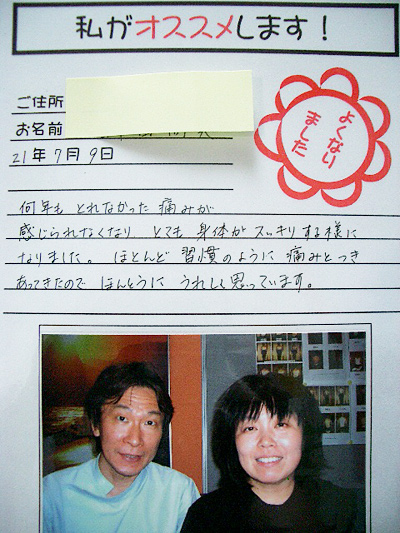 私がオススメします！
ご住所
お名前
21年7月9日
よくなり
ました
何年も とれなかった 痛みが
感じられなくなり とても 身体が スッキリする様に
なりました。 ほとんど 習慣のように 痛みとつき
あってきたので ほんとうに うれしく思っています。